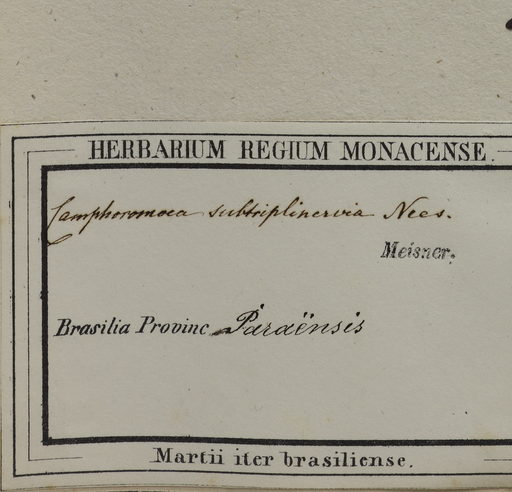 HERBARIUM REGIUM MONACENSE.
Camphoromoea subtriplinervia Nees.
Meisner.
Brasilia Provinc. Paraënsis
Martii iter brasiliense.